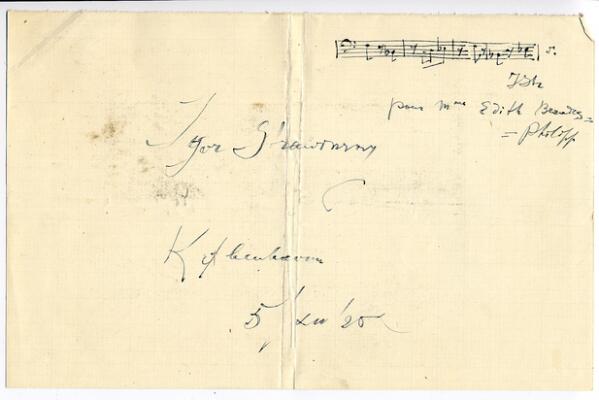 IStr
pour Mme Edith Brandes =
= Philipp
Igor Strawinsky
København
5/XII '25